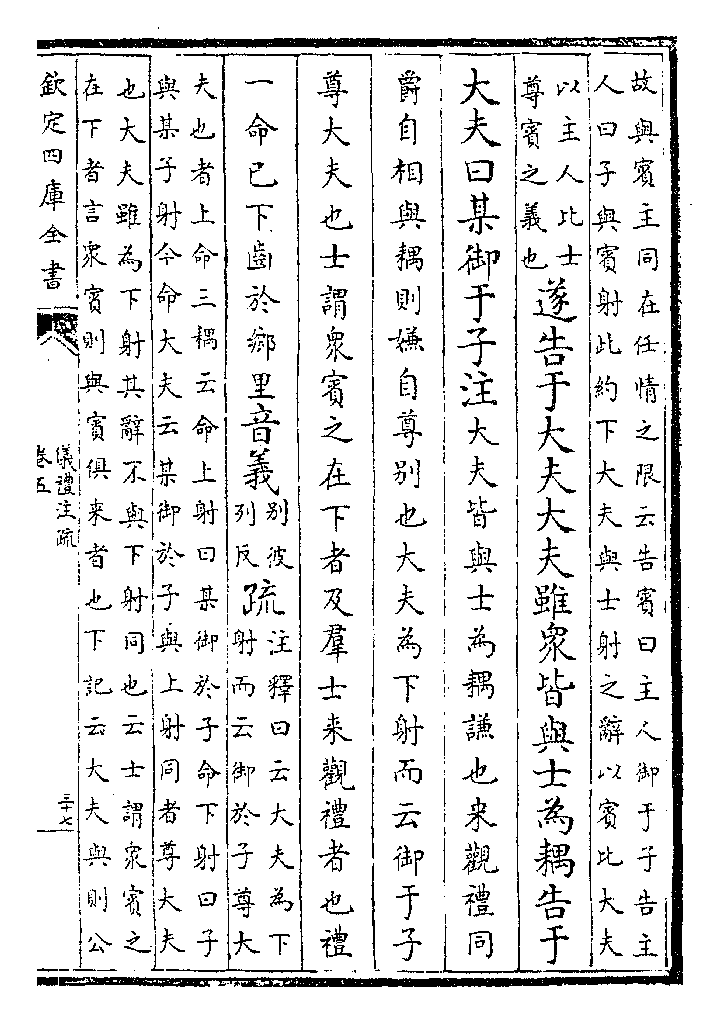 故與賓主同在任情之限云告賓曰主人御于子告主
人曰子與賓射此約下大夫與士射之辭以賓比大夫
以主人比士
尊賓之義也
遂告于大夫大夫雖衆皆與士為耦告于
大夫曰某御于子注大夫皆與士為耦謙也来觀禮同
爵自相與耦則嫌自尊别也大夫為下射而云御于子
尊大夫也士謂衆賓之在下者及羣士来觀禮者也禮
一命已下齒於鄉里音義
别彼
列反
疏
注釋曰云大夫為下
射而云御於子尊大
夫也者上命三耦云命上射曰某御於子命下射曰子
與某子射今命大夫云某御於子與上射同者尊大夫
也大夫雖為下射其辭不與下射同也云士謂衆賓之
在下者言衆賓則與賓俱来者也下記云大夫與則公
欽定四庫全書
儀禮注疏
卷五
三十七